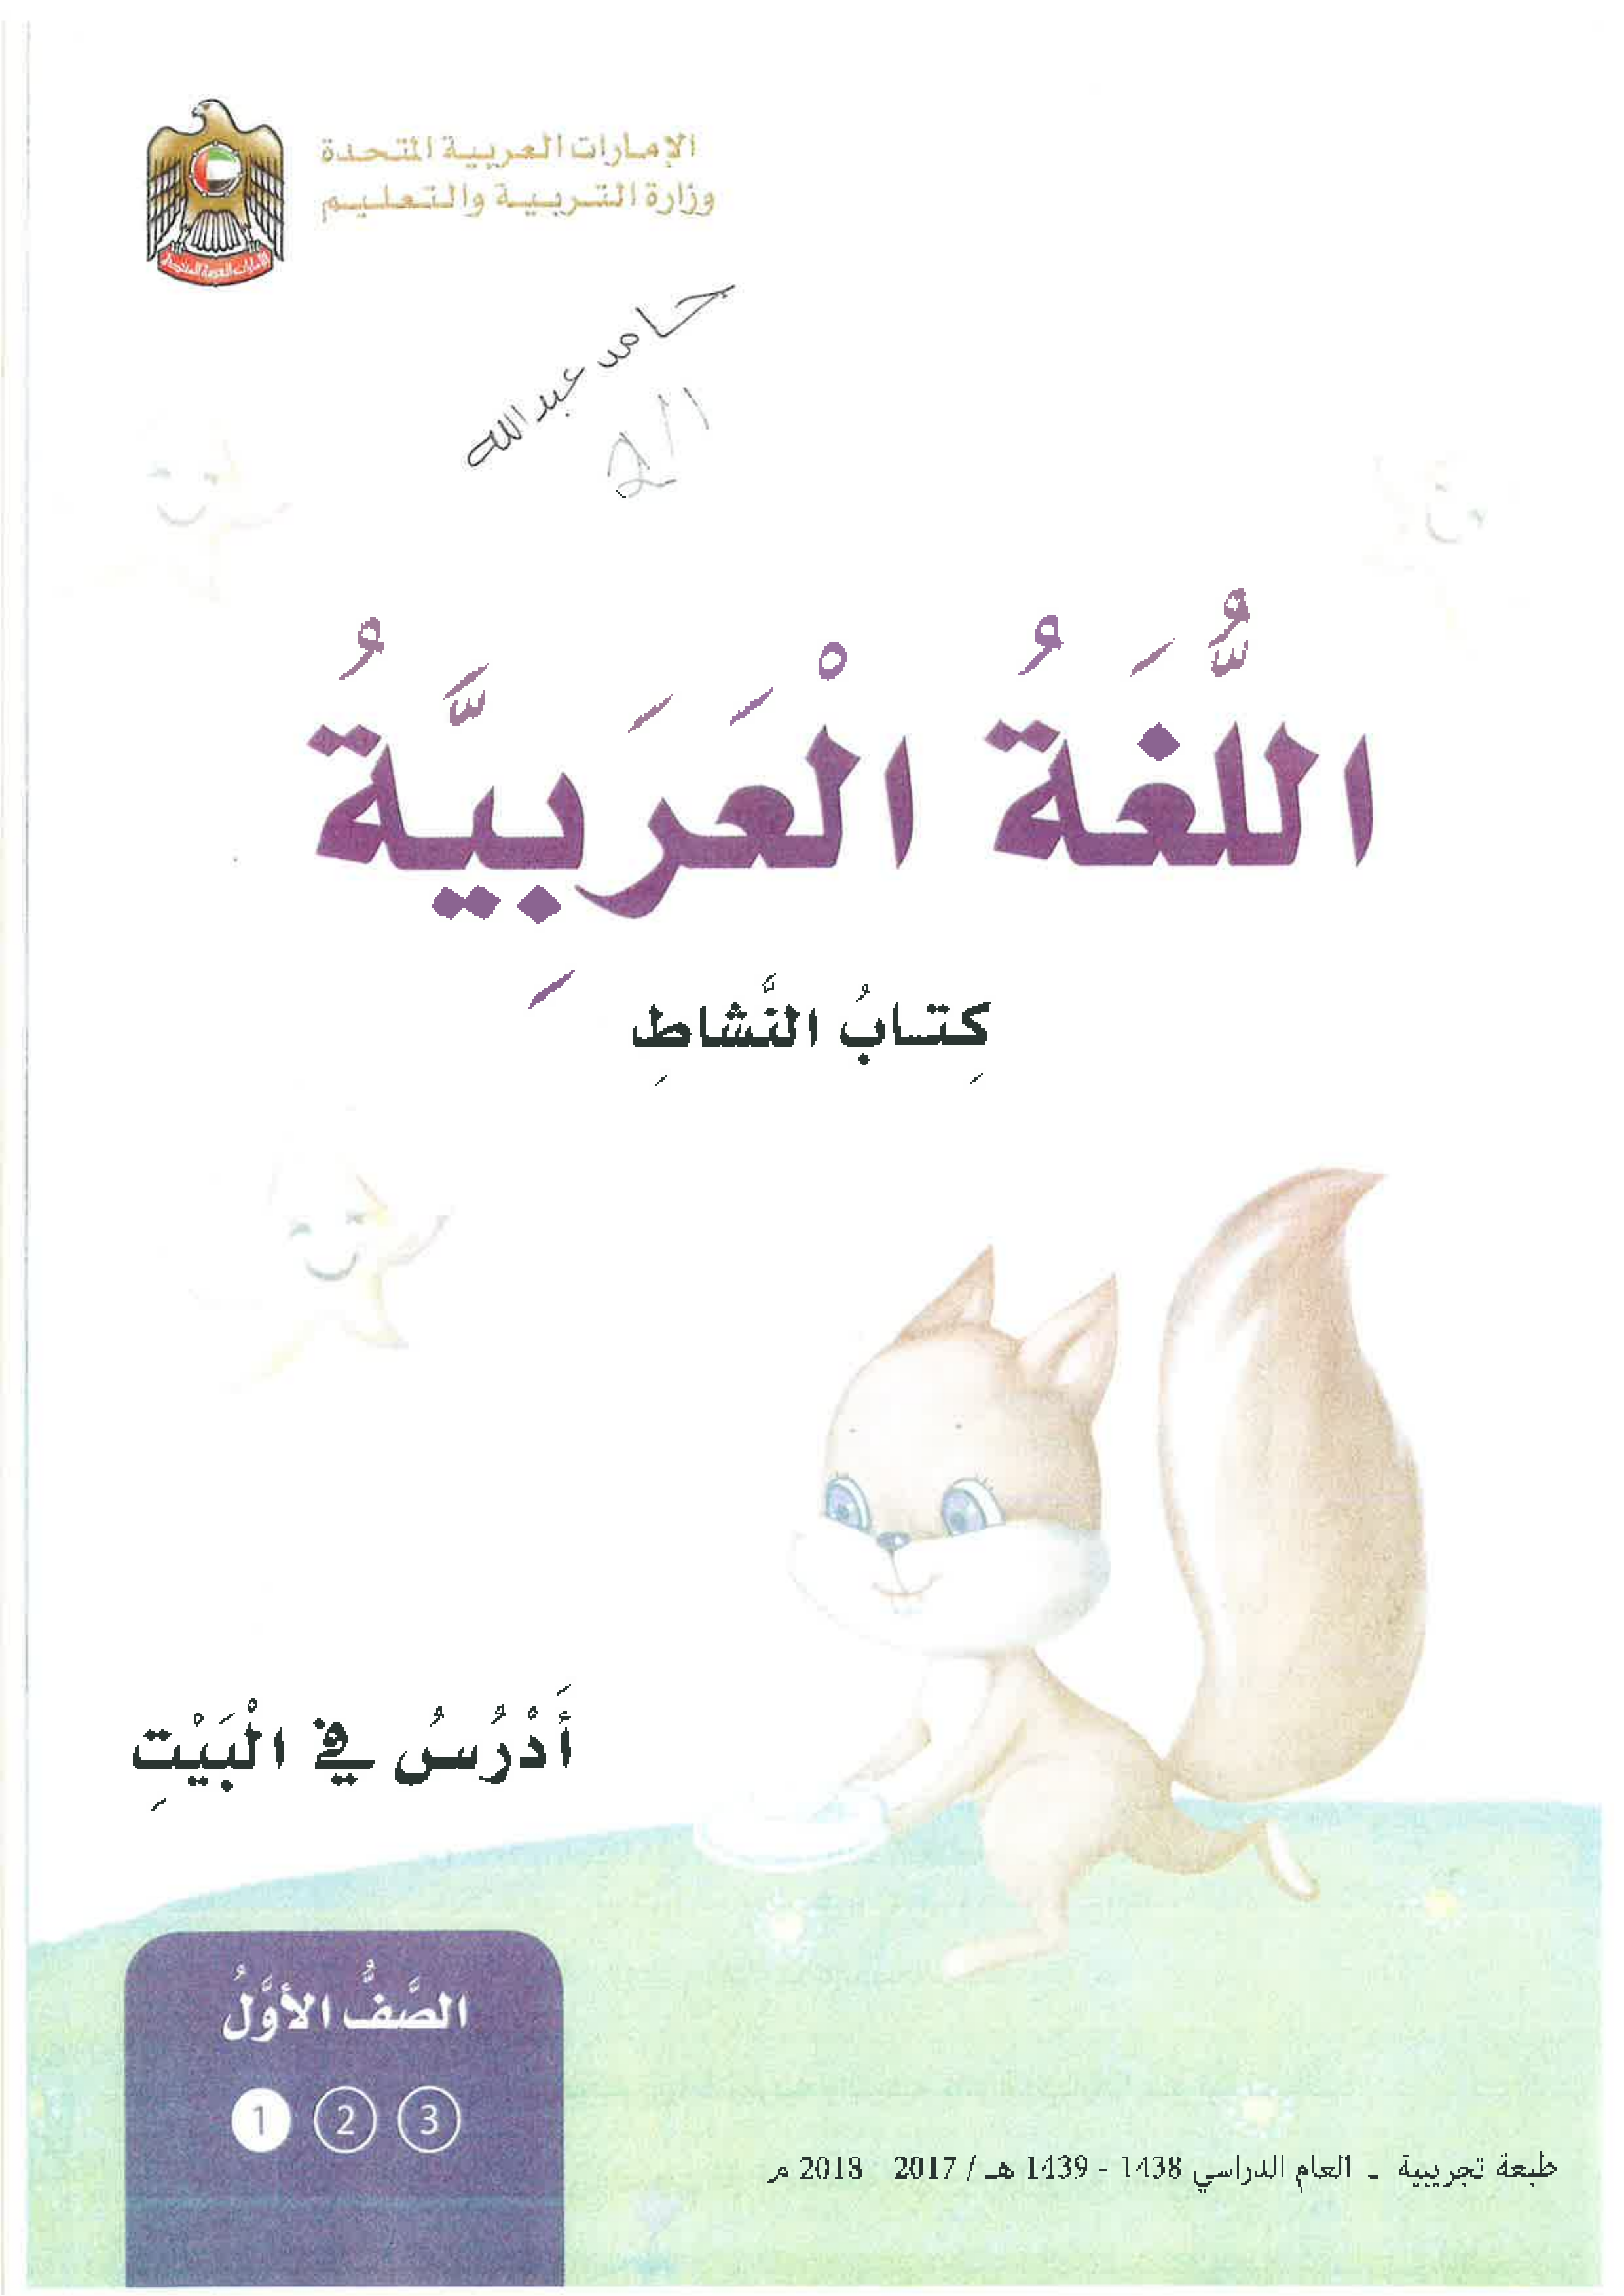 الإمارات العربية المتحدة
وزارة التربية والتعليم
الإمارات العربية المتحدة
حامد عبدالله
2/1
اللُّغَةُ الْعَرَبِيَّةُ
كِتابُ النَّشاطِ
أَدْرُسُ في الْبَيْتِ
الصَّفُّ الأوَّلُ
1 2 3
طبعة تجريبية - العام الدراسي 1438 - 1439 هـ / 2017 2018 م